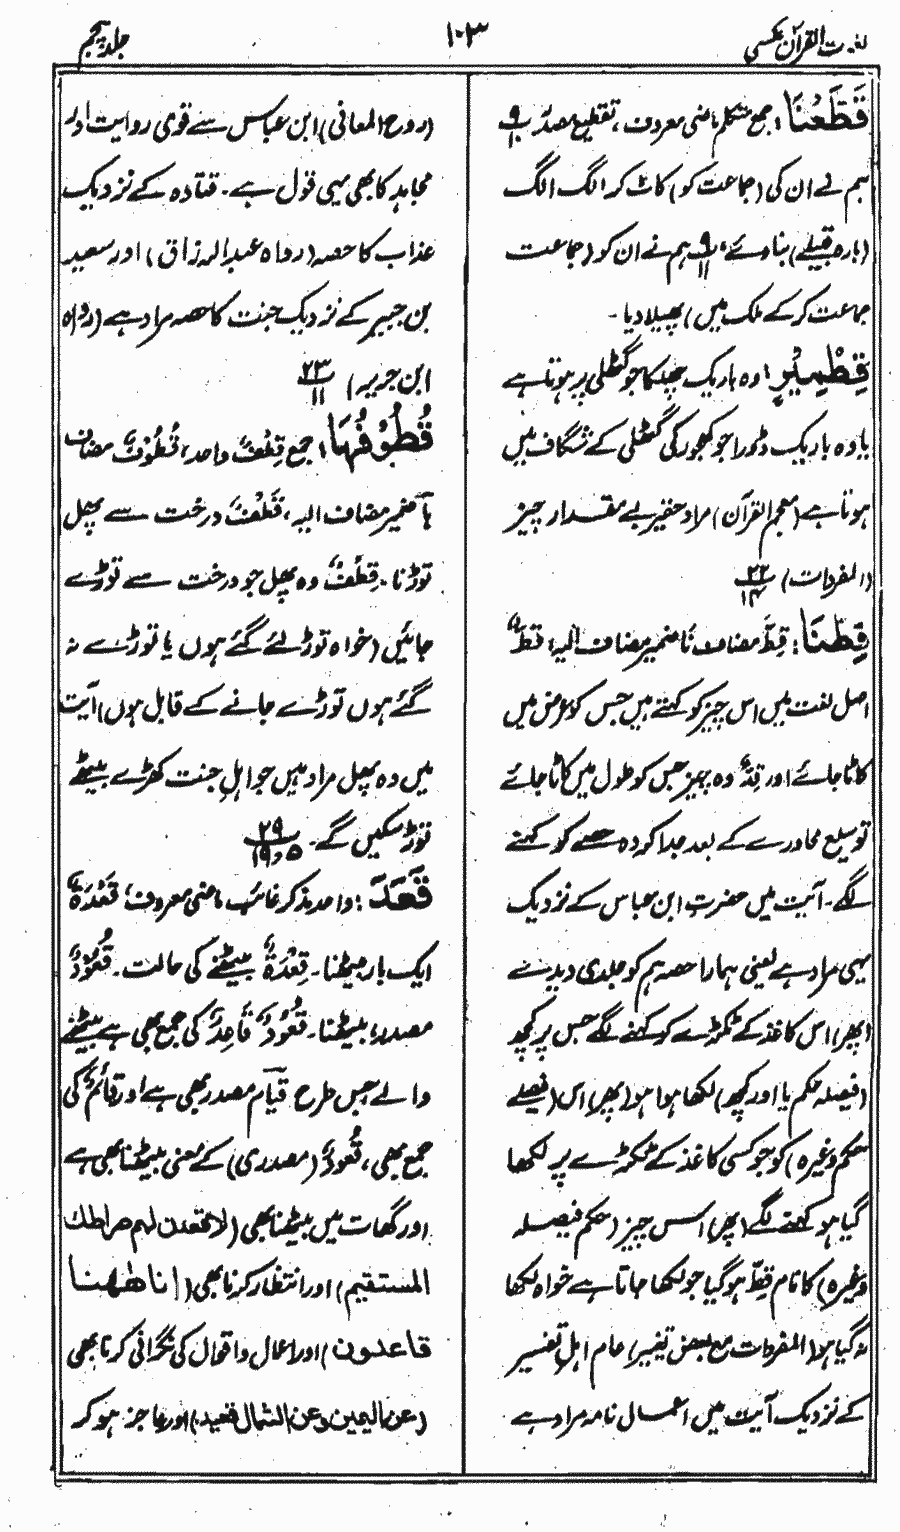 لغت القرآن عکسی
۱۰۳
جلد پنجم
قَطَّعْنَا: جمع متکلم ماضی معروف، تقطیع مصدر پ ۹
ہم نے ان کی (جماعت کو) کاٹ کر الگ الگ
(بارہ قبیلے) بنا دئے، پ ۹/۱۱ ہم نے ان کو (جماعت
جماعت کر کے ملک میں) پھیلا دیا۔
قِطْمِیْرٍ: وہ باریک چھلکا جو گٹھلی پر ہوتا ہے
یا وہ باریک ڈورا جو کھجور کی گٹھلی کے شگاف میں
ہوتا ہے (معجم القرآن) مراد حقیر بے مقدار چیز
(المفردات) ۲۲/۱۴
قِطَّنَا: قِطَّ مضاف نَا ضمیر مضاف الیہ، قطٌّ
اصل لغت میں اس چیز کو کہتے ہیں جس کو عرض میں
کاٹا جائے اور قِدٌّ وہ چیز جس کو طول میں کاٹا جائے
توسیع محاورے کے بعد جدا کردہ حصے کو کہنے
لگے۔ آیت میں حضرت ابن عباس کے نزدیک
یہی مراد ہے یعنی ہمارا حصہ ہم کو جلدی دیدے
(پھر) اس کاغذ کے ٹکڑے کو کہنے لگے جس پر کچھ
(فیصلہ حکم یا اور کچھ) لکھا ہوا ہو (پھر) اس (فیصلے
حکم وغیرہ) کو جو کسی کاغذ کے ٹکڑے پر لکھا
گیا ہو کہنے لگے (پھر) اس چیز (حکم فیصلہ
وغیرہ) کا نام قِطّ ہو گیا جو لکھا جاتا ہے خواہ لکھا
نہ گیا ہو (المفردات مع بعض تغییر) عام اہل تفسیر
کے نزدیک آیت میں اعمال نامہ مراد ہے
(روح المعانی) ابن عباس سے قوی روایت اور
مجاہد کا بھی یہی قول ہے۔ قتادہ کے نزدیک
عذاب کا حصہ (رواہ عبدالرزاق) اور سعید
بن جبیر کے نزدیک جنت کا حصہ مراد ہے (رواہ
ابن جریر) ۲۳/۱۱
قُطُوْفُهَا: جمع قِطْفٌ واحد، قُطُوْفٌ مضاف
ہا ضمیر مضاف الیہ، قَطْفٌ درخت سے پھل
توڑنا۔ قِطْفٌ وہ پھل جو درخت سے توڑے
جائیں (خواہ توڑ لئے گئے ہوں یا توڑے نہ
گئے ہوں توڑے جانے کے قابل ہوں) آیت
میں وہ پھل مراد ہیں جو اہلِ جنت کھڑے بیٹھے
توڑ سکیں گے۔ ۲۹/۵ و ۱۹
قَعَدَ: واحد مذکر غائب ماضی معروف، قَعْدَةٌ
ایک بار بیٹھنا۔ قِعْدَةٌ بیٹھنے کی حالت۔ قُعُوْدٌ
مصدر، بیٹھنا۔ قُعُوْدٌ، قَاعِدٌ کی جمع بھی ہے بیٹھنے
والے جس طرح قیام مصدر بھی ہے اور قائمٌ کی
جمع بھی، قُعُودٌ (مصدری) کے معنی بیٹھنا بھی ہے
اور گھات میں بیٹھنا بھی (لاقعدن لہم صراطک
المستقیم) اور انتظار کرنا بھی (انا ھٰھنا
قاعدون) اور اعمال و اقوال کی نگرانی کرنا بھی
(عن الیمین وعن الشمال قعید) اور عاجز ہو کر